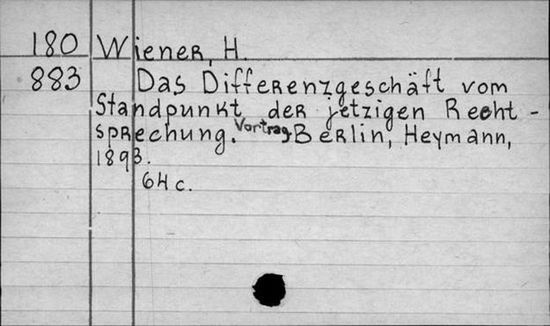 180 Wiener, H.
883 Das Differenzgeschäft vom
Standpunkt der jetzigen Recht-
sprechung. Vortrag. Berlin, Heymann,
1893.
64 c.